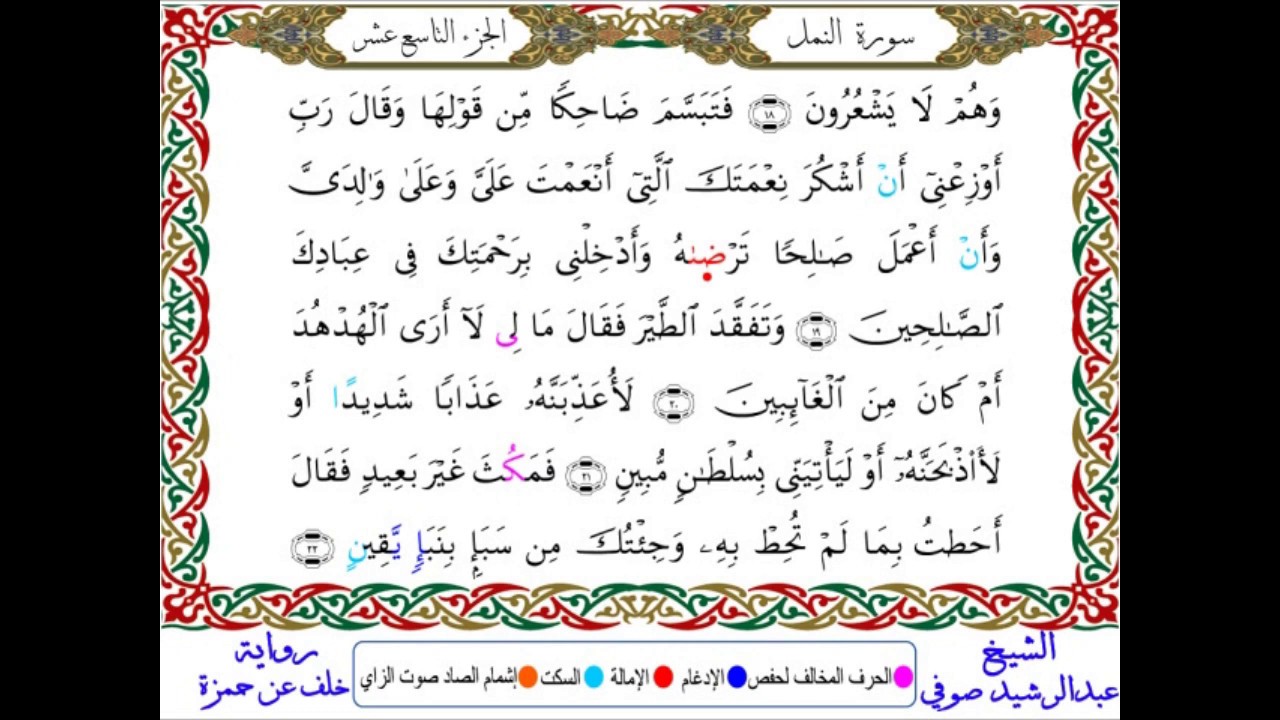 سورة النمل
الجزء التاسع عشر
وَهُمْ لَا يَشْعُرُونَ ١٨ فَتَبَسَّمَ ضَاحِكًا مِّن قَوْلِهَا وَقَالَ رَبِّ
أَوْزِعْنِىٓ أَنْ أَشْكُرَ نِعْمَتَكَ ٱلَّتِىٓ أَنْعَمْتَ عَلَىَّ وَعَلَىٰ وَٰلِدَىَّ
وَأَنْ أَعْمَلَ صَـٰلِحًا تَرْضىٰهُ وَأَدْخِلْنِى بِرَحْمَتِكَ فِى عِبَادِكَ
ٱلصَّـٰلِحِينَ ١٩ وَتَفَقَّدَ ٱلطَّيْرَ فَقَالَ مَا لِى لَآ أَرَى ٱلْهُدْهُدَ
أَمْ كَانَ مِنَ ٱلْغَآئِبِينَ ٢٠ لَأُعَذِّبَنَّهُۥ عَذَابًا شَدِيدًا أَوْ
لَأَا۟ذْبَحَنَّهُۥٓ أَوْ لَيَأْتِيَنِّى بِسُلْطَـٰنٍ مُّبِينٍ ٢١ فَمَكُثَ غَيْرَ بَعِيدٍ فَقَالَ
أَحَطتُ بِمَا لَمْ تُحِطْ بِهِۦ وَجِئْتُكَ مِن سَبَإٍ بِنَبَإٍ يَّقِينٍ ٢٢
الشيخ
عبدالرشيد صوفي
الحرف المخالف لحفص الإدغام الإمالة السكت إشمام الصاد صوت الزاي
رواية
خلف عن حمزة